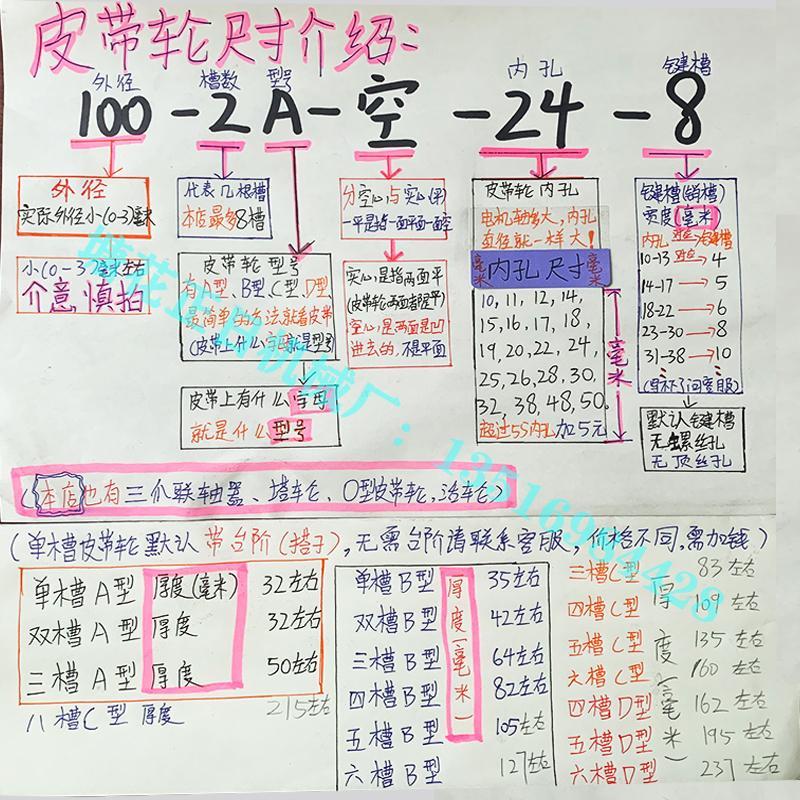 皮带轮尺寸介绍:
外径 槽数 型号 内孔 键槽
100-2A-空-24-8
外径
实际外径小(0-3)毫米
小(0-3)毫米左右
介意慎拍
代表几根槽
本店最多8槽
皮带轮型号
有A型、B型、C型、D型,
最简单的办法就看皮带
(皮带上什么字母就是型号)
皮带上有什么字母
就是什么型号
分空心与实心(平)
一平是指一面平面一面空
实心,是指两面平
空心,是两面是凹
进去的,不是平面
皮带轮内孔
电机轴多大,内孔
直径就一样大!
毫米 内孔尺寸 毫米
10, 11, 12, 14,
15, 16, 17, 18,
19, 20, 22, 24,
25, 26, 28, 30,
32, 38, 48, 50.
超过55内孔加5元
毫米
键槽(销槽)
宽度(毫米)
内孔 对应 键槽
10-13 对应→ 4
14-17 → 5
18-22 → 6
23-30 → 8
31-38 → 10
默认键槽
无螺丝孔
无顶丝孔
(本店也有三爪联轴器、塔车轮、O型皮带轮,活车轮)
(单槽皮带轮默认带台阶(搭子),无需台阶请联系客服,价格不同,需加钱)
单槽A型 厚度(毫米) 32左右
双槽A型 厚度 32左右
三槽A型 厚度 50左右
八槽C型 厚度 215左右
厚度(毫米)
单槽B型 35左右
双槽B型 42左右
三槽B型 64左右
四槽B型 82左右
五槽B型 105左右
六槽B型 127左右
厚度(毫米)
三槽C型 83左右
四槽C型 109左右
五槽C型 135左右
六槽C型 160左右
四槽D型 162左右
五槽D型 195左右
六槽D型 237左右